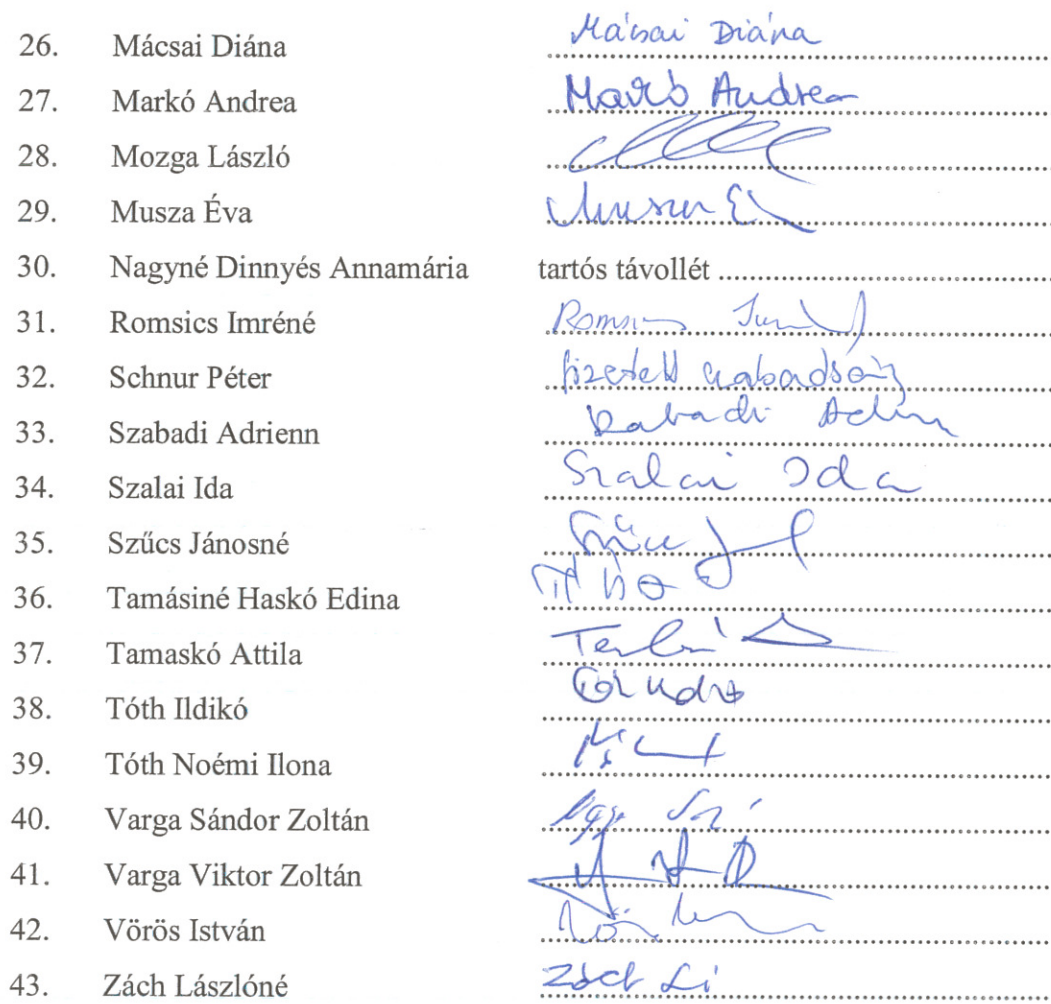 26. Mácsai Diána Mácsai Diána
27. Markó Andrea Markó Andrea
28. Mozga László
29. Musza Éva Musza É
30. Nagyné Dinnyés Annamária tartós távollét
31. Romsics Imréné
32. Schnur Péter fizetett szabadság
33. Szabadi Adrienn Szabadi
34. Szalai Ida Szalai Ida
35. Szűcs Jánosné Szűcs
36. Tamásiné Haskó Edina
37. Tamaskó Attila
38. Tóth Ildikó
39. Tóth Noémi Ilona
40. Varga Sándor Zoltán
41. Varga Viktor Zoltán
42. Vörös István
43. Zách Lászlóné Zách